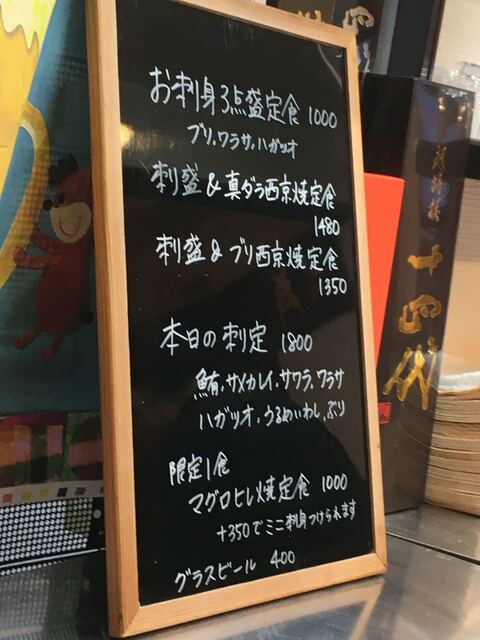 お刺身3点盛定食 1000
ブリ、ワラサ、ハガツオ
刺盛&真ダラ西京焼定食
1480
刺盛&ブリ西京焼定食
1350
本日の刺定 1800
鮪、サメカレイ、サワラ、ワラサ
ハガツオ、うるめいわし、ぶり
限定1食
マグロヒレ焼定食 1000
+350でミニ刺身つけられます
グラスビール 400
十四代